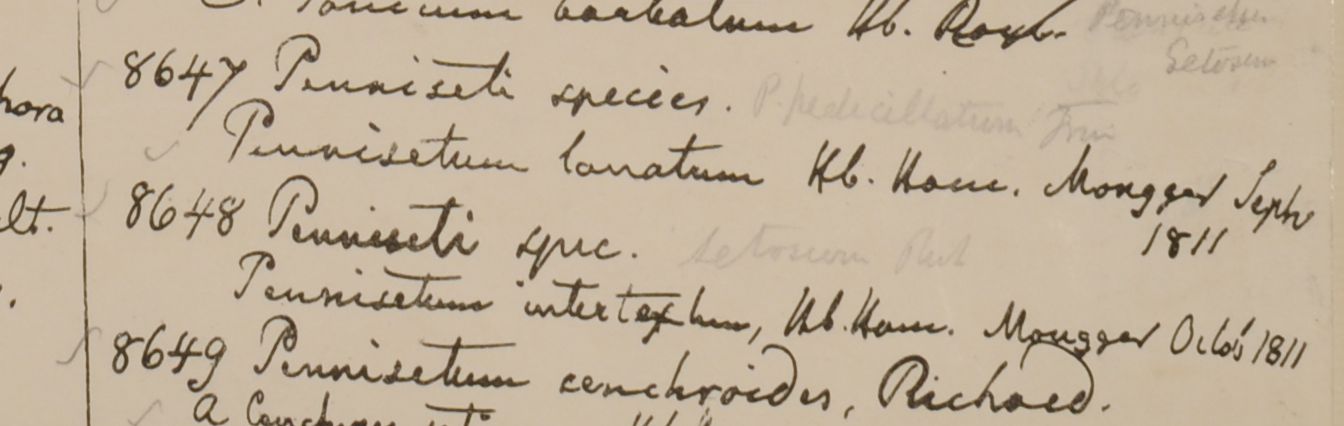 barbatum Hb. Roxb. Pennisetum
Setosum
8647 Penniseti species. P. pedicellatum Trin
Pennisetum lanatum Hb. Ham. Mongger Septr
1811
8648 Penniseti spec. setosum Rich
Pennisetum intertextum, Hb. Ham. Mongger Octob 1811
8649 Pennisetum cenchroides, Richard.
a Cenchrus
hora
alt.